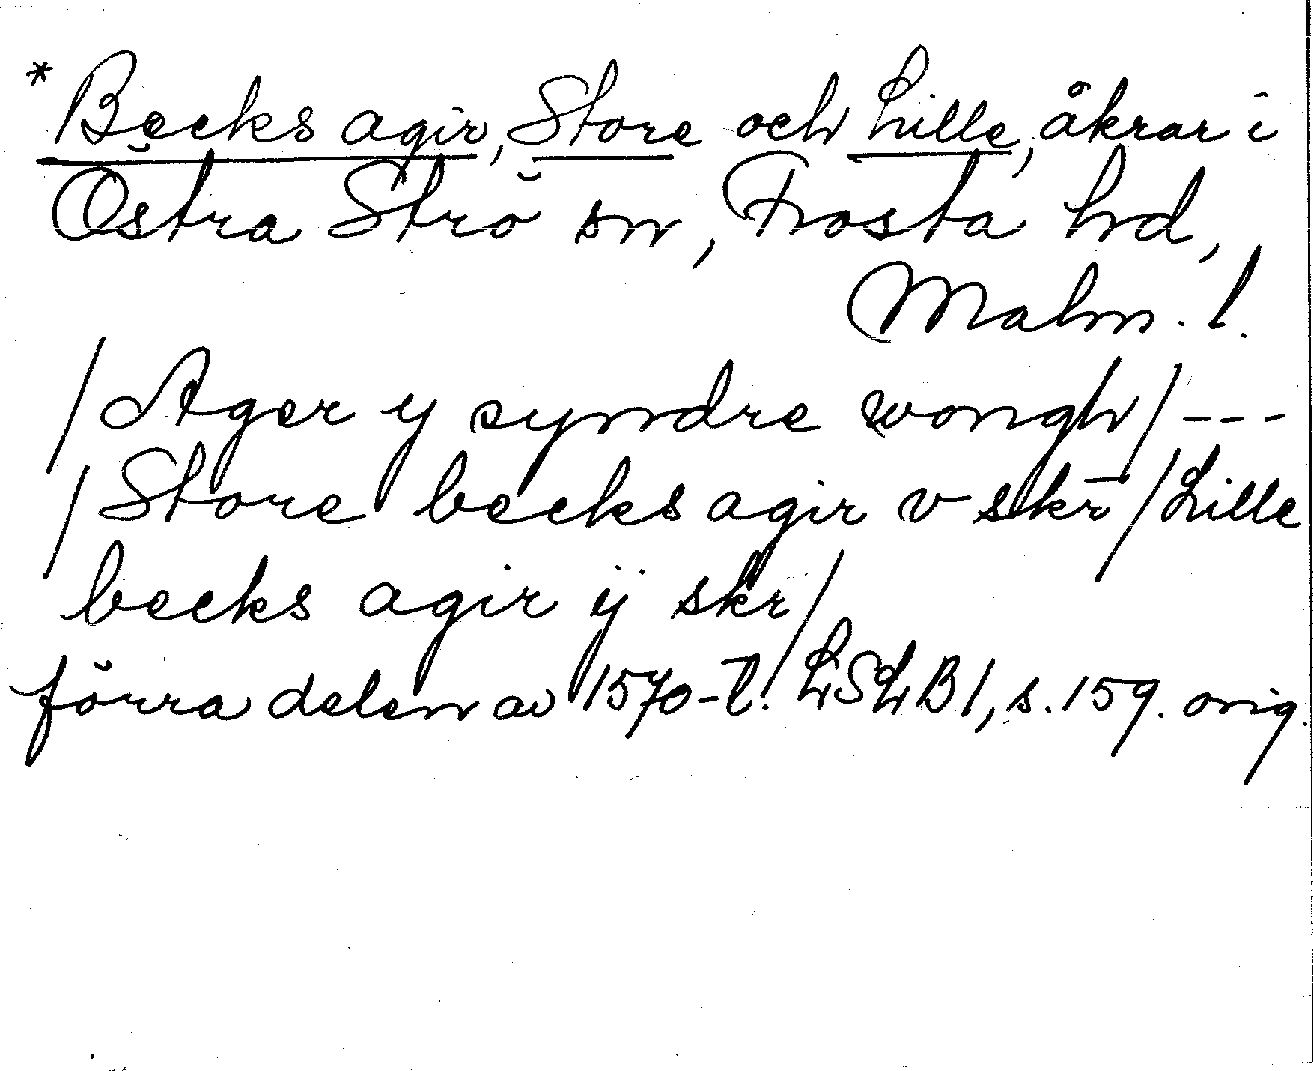 *Becks agir, Store och Lille, åkrar i
Östra Strö sn, Frosta hd,
Malm. l.
/Ager y syndre wongh/---
/Store becks agir v skr̄/Lille
becks agir ij skr/
förra delen av 1570-t. LSLB1, s.159. orig.